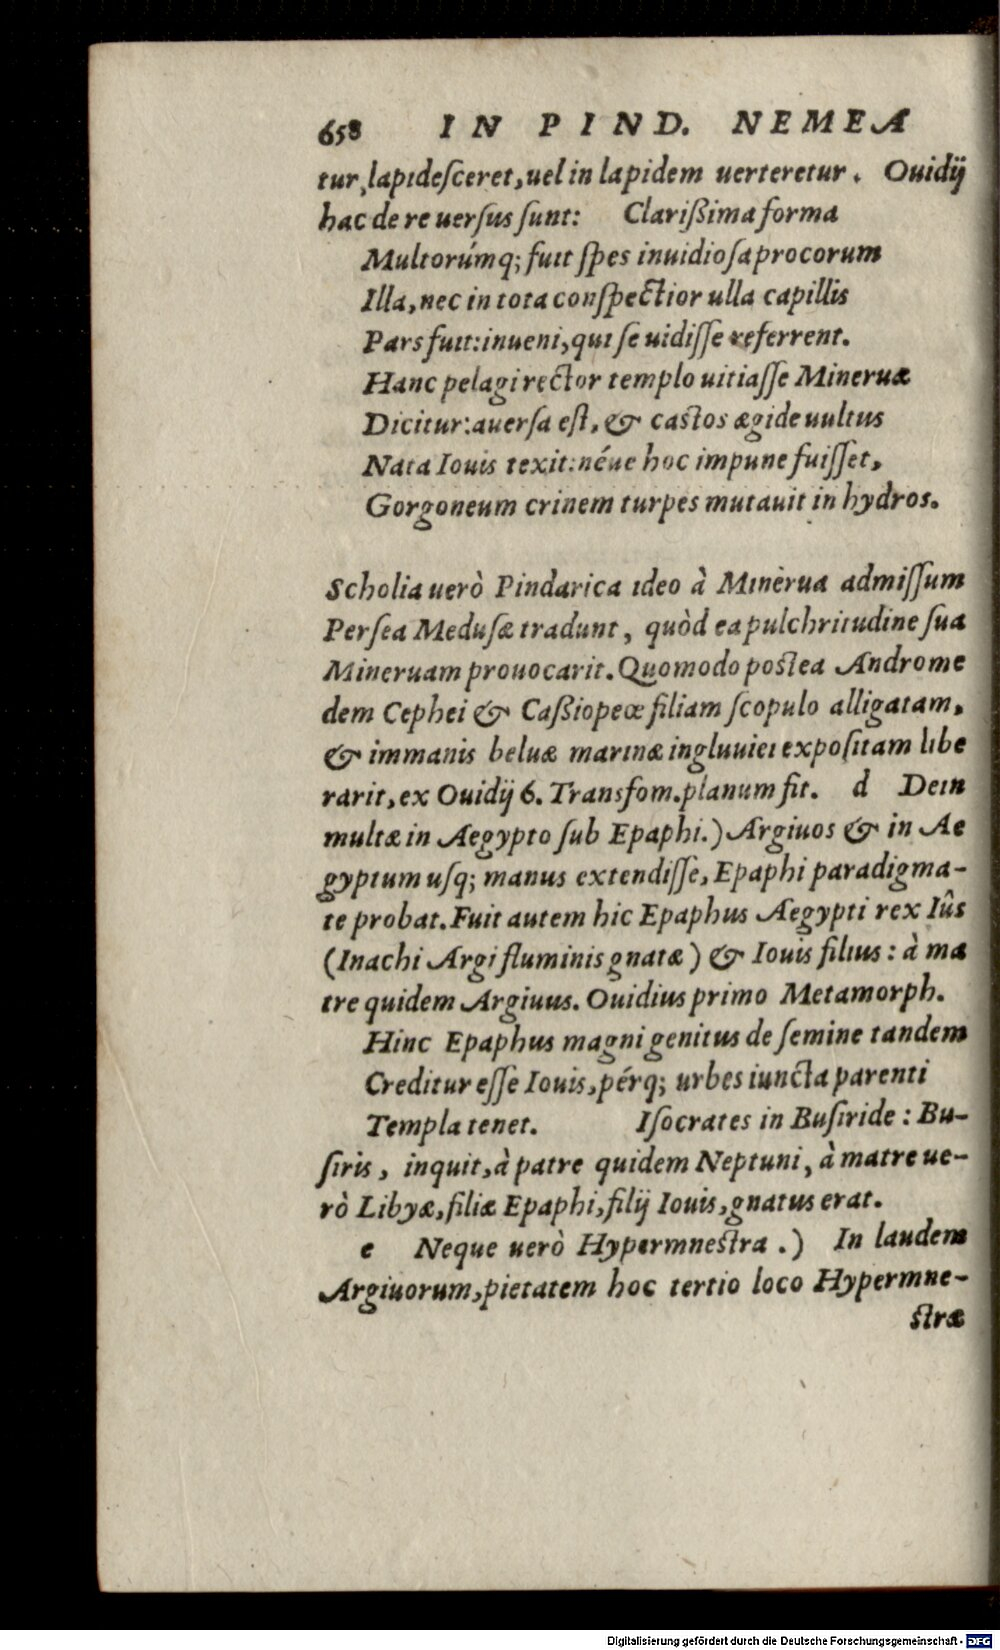 658 IN PIND. NEMEA
tur, lapideſceret, uel in lapidem uerteretur. Ouidij
hac de re uerſus ſunt: Clarißima forma
Multorúmq; fuit ſpes inuidioſa procorum
Illa, nec in tota conſpectior ulla capillis
Pars fuit: inueni, qui ſe uidiſſe referrent.
Hanc pelagi rector templo uitiaſſe Mineruæ
Dicitur: auerſa eſt, & castos ægide uultus
Nata Iouis texit: néue hoc impune fuiſſet,
Gorgoneum crinem turpes mutauit in hydros.
Scholia uerò Pindarica ideo à Minerua admiſſum
Perſea Meduſæ tradunt, quòd ea pulchritudine ſua
Mineruam prouocarit. Quomodo postea Androme
dem Cephei & Caßiopeœ filiam ſcopulo alligatam,
& immanis beluæ marinæ ingluuiei expoſitam libe
rarit, ex Ouidij 6. Transfom. planum fit. d Dein
multæ in Aegypto ſub Epaphi.) Argiuos & in Ae
gyptum uſq; manus extendiſſe, Epaphi paradigma-
te probat. Fuit autem hic Epaphus Aegypti rex Iûs
(Inachi Argi fluminis gnatæ) & Iouis filius: à ma
tre quidem Argiuus. Ouidius primo Metamorph.
Hinc Epaphus magni genitus de ſemine tandem
Creditur eſſe Iouis, pérq; urbes iuncta parenti
Templa tenet. Iſocrates in Buſiride: Bu-
ſiris, inquit, à patre quidem Neptuni, à matre ue-
rò Libyæ, filiæ Epaphi, filij Iouis, gnatus erat.
e Neque uerò Hypermnestra.) In laudem
Argiuorum, pietatem hoc tertio loco Hypermne-
stræ
Digitalisierung gefördert durch die Deutsche Forschungsgemeinschaft - DFG